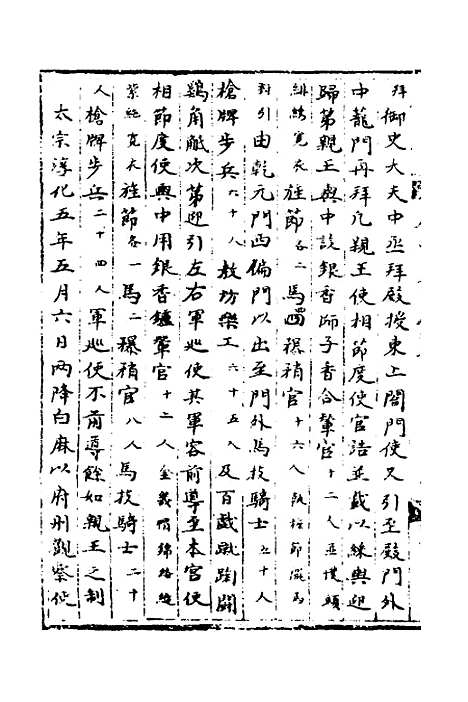 拜御史大夫中丞拜殿後東上閤門使又引至殿門外
中龍門再拜凡親王使相節度使官誥並載以綵輿迎
歸第親王輿中設銀香師子香合輦官十二人並幞頭
緋繡寬衣旌節各二馬 騾稍官十六人執旌節 馬
對引由乾元門西偏門以出至門外馬技騎士五十人
槍牌步兵六十人教坊樂工六十五人及百戲蹴踘鬭
鷄角觝次第迎引左右軍巡使具軍容前導至本宮使
相節度使輿中用銀香爐輦官十二人金義帽錦絡縫
紫絁寬衣旌節各一馬二騾稍官八人馬技騎士二十
人槍牌步兵二十四人軍巡使不前導餘如親王之制
太宗淳化五年五月六日内降白麻以府州觀察使